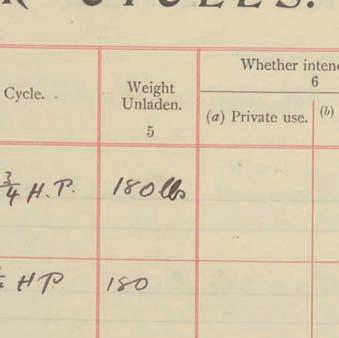 CYCLES.
Cycle.
Weight
Unladen.
5
Whether inten
6
(a) Private use.
(b)
3/4 H.P.
180 lbs
HP
180